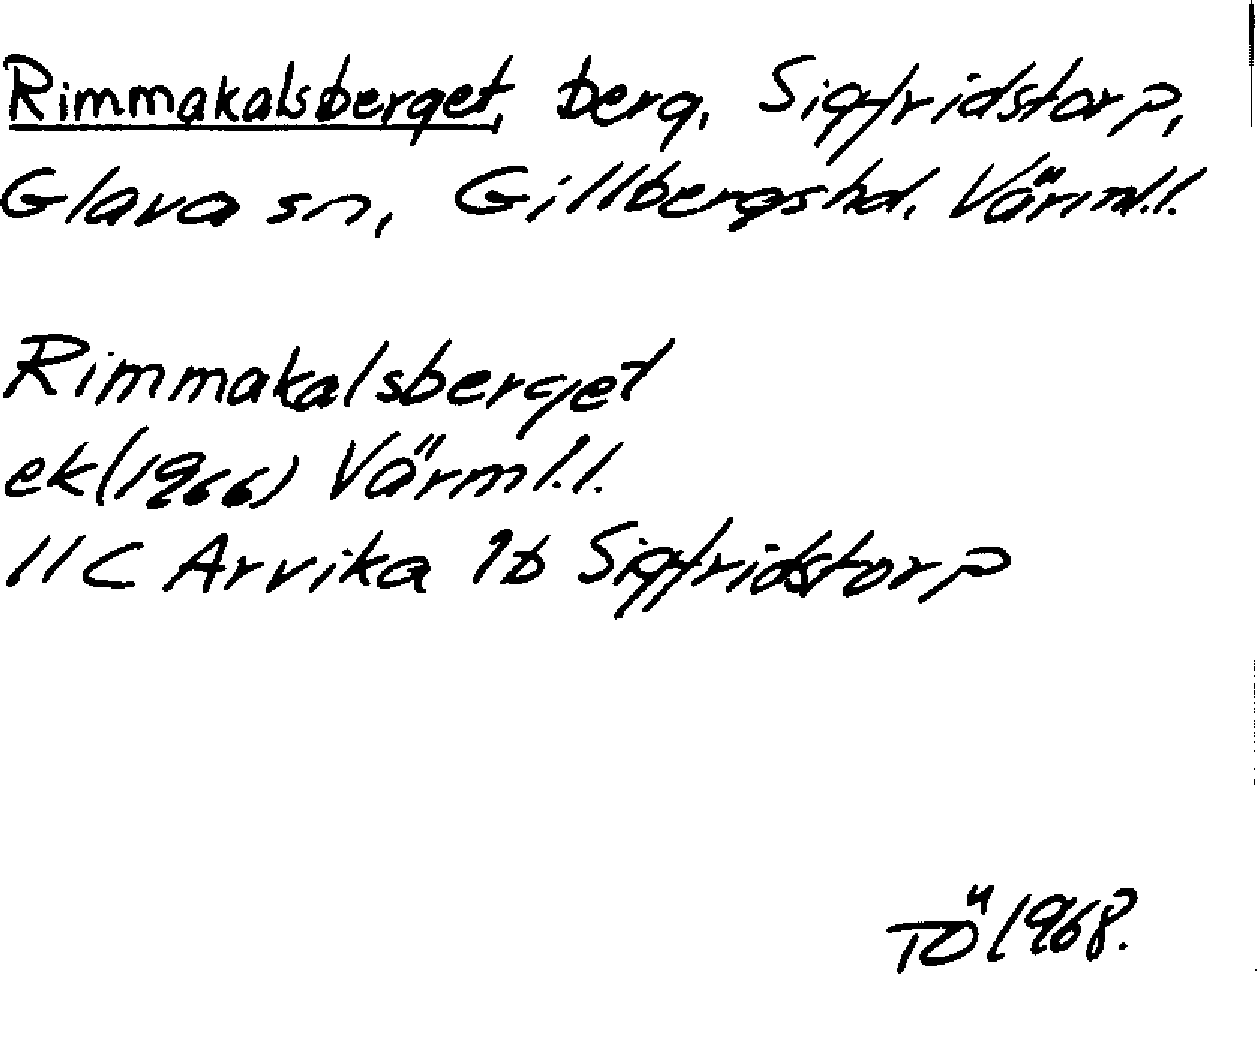 Rimmakalsberget, berg, Sigfridstorp,
Glava sn, Gillbergshd. Värml.l.
Rimmakalsberget
ek(1966) Värml.l.
11C Arvika 1b Sigfridstorp
TÖ 1968.